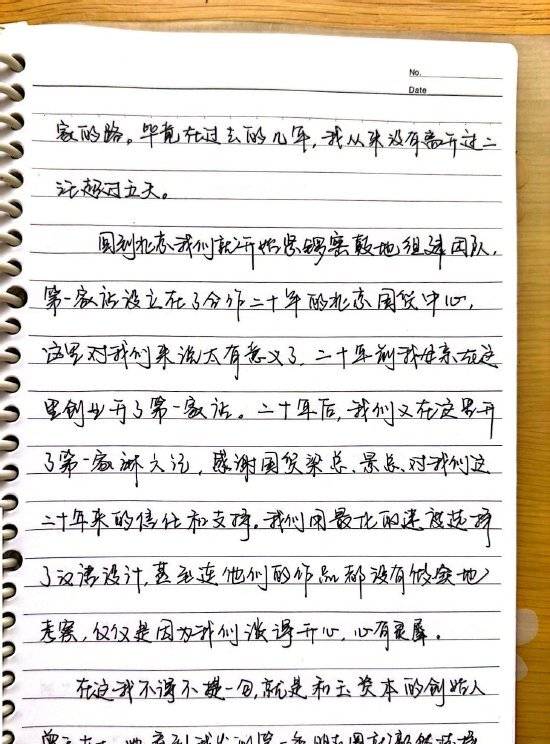 No.
Date
家的路。毕竟在过去的几年,我从来没有离开过二
汪超过五天。
回到北京我们就开始紧锣密鼓地组建团队,
第一家店设立在了合作二十年的北京国贸中心,
这里对我们来说太有意义了,二十年前我母亲在这
里创业开了第一家店。二十年后,我们又在这里开
了第一家麻六记,感谢国贸梁总、景总、对我们这
二十年来的信任和支持。我们用最快的速度选择
了汉诺设计,甚至连他们的作品都没有做实地
考察,仅仅是因为我们谈得开心,心有灵犀。
在这我不得不提一句,就是和玉资本的创始人